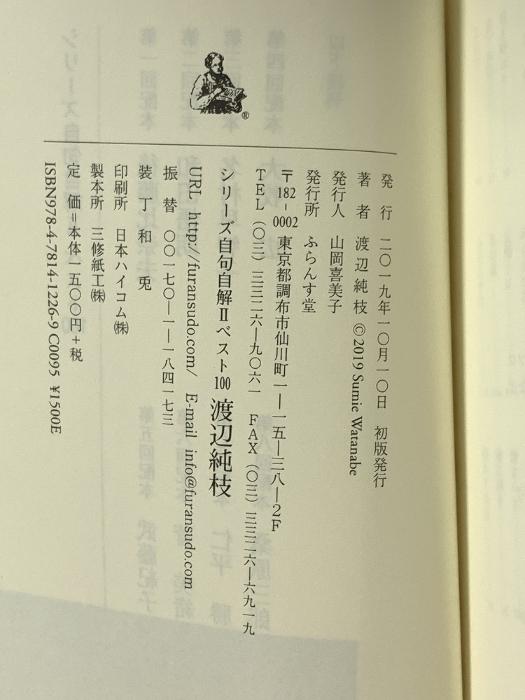 ®
発　行　二〇一九年一〇月一〇日　初版発行
著　者　渡辺純枝 © 2019 Sumie Watanabe
発行人　山岡喜美子
発行所　ふらんす堂
〒182-0002 東京都調布市仙川町一―一五―三八―２Ｆ
TEL（〇三）三三二六―九〇六一　FAX（〇三）三三二六―六九一九
シリーズ自句自解Ⅱベスト100 渡辺純枝
URL http://furansudo.com/　E-mail info@furansudo.com
振　替　〇〇一七〇―一―一八四一七三
装　丁　和　兎
印刷所　日本ハイコム㈱
製本所　三修紙工㈱
定　価＝本体一五〇〇円＋税
ISBN978-4-7814-1226-9 C0095 ¥1500E